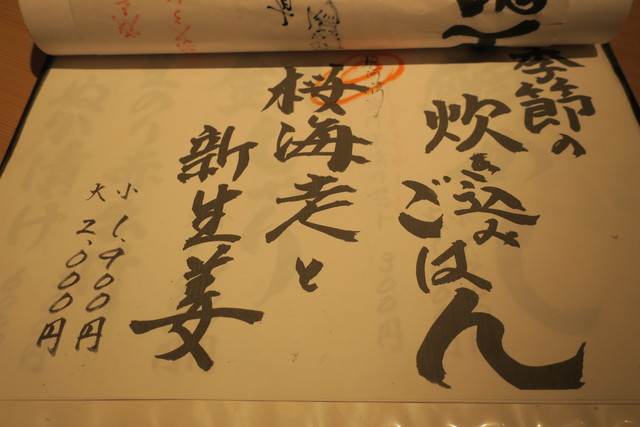 季節の
炊き込み
ごはん
桜海老と
新生姜
小 1,900円
大 2,000円